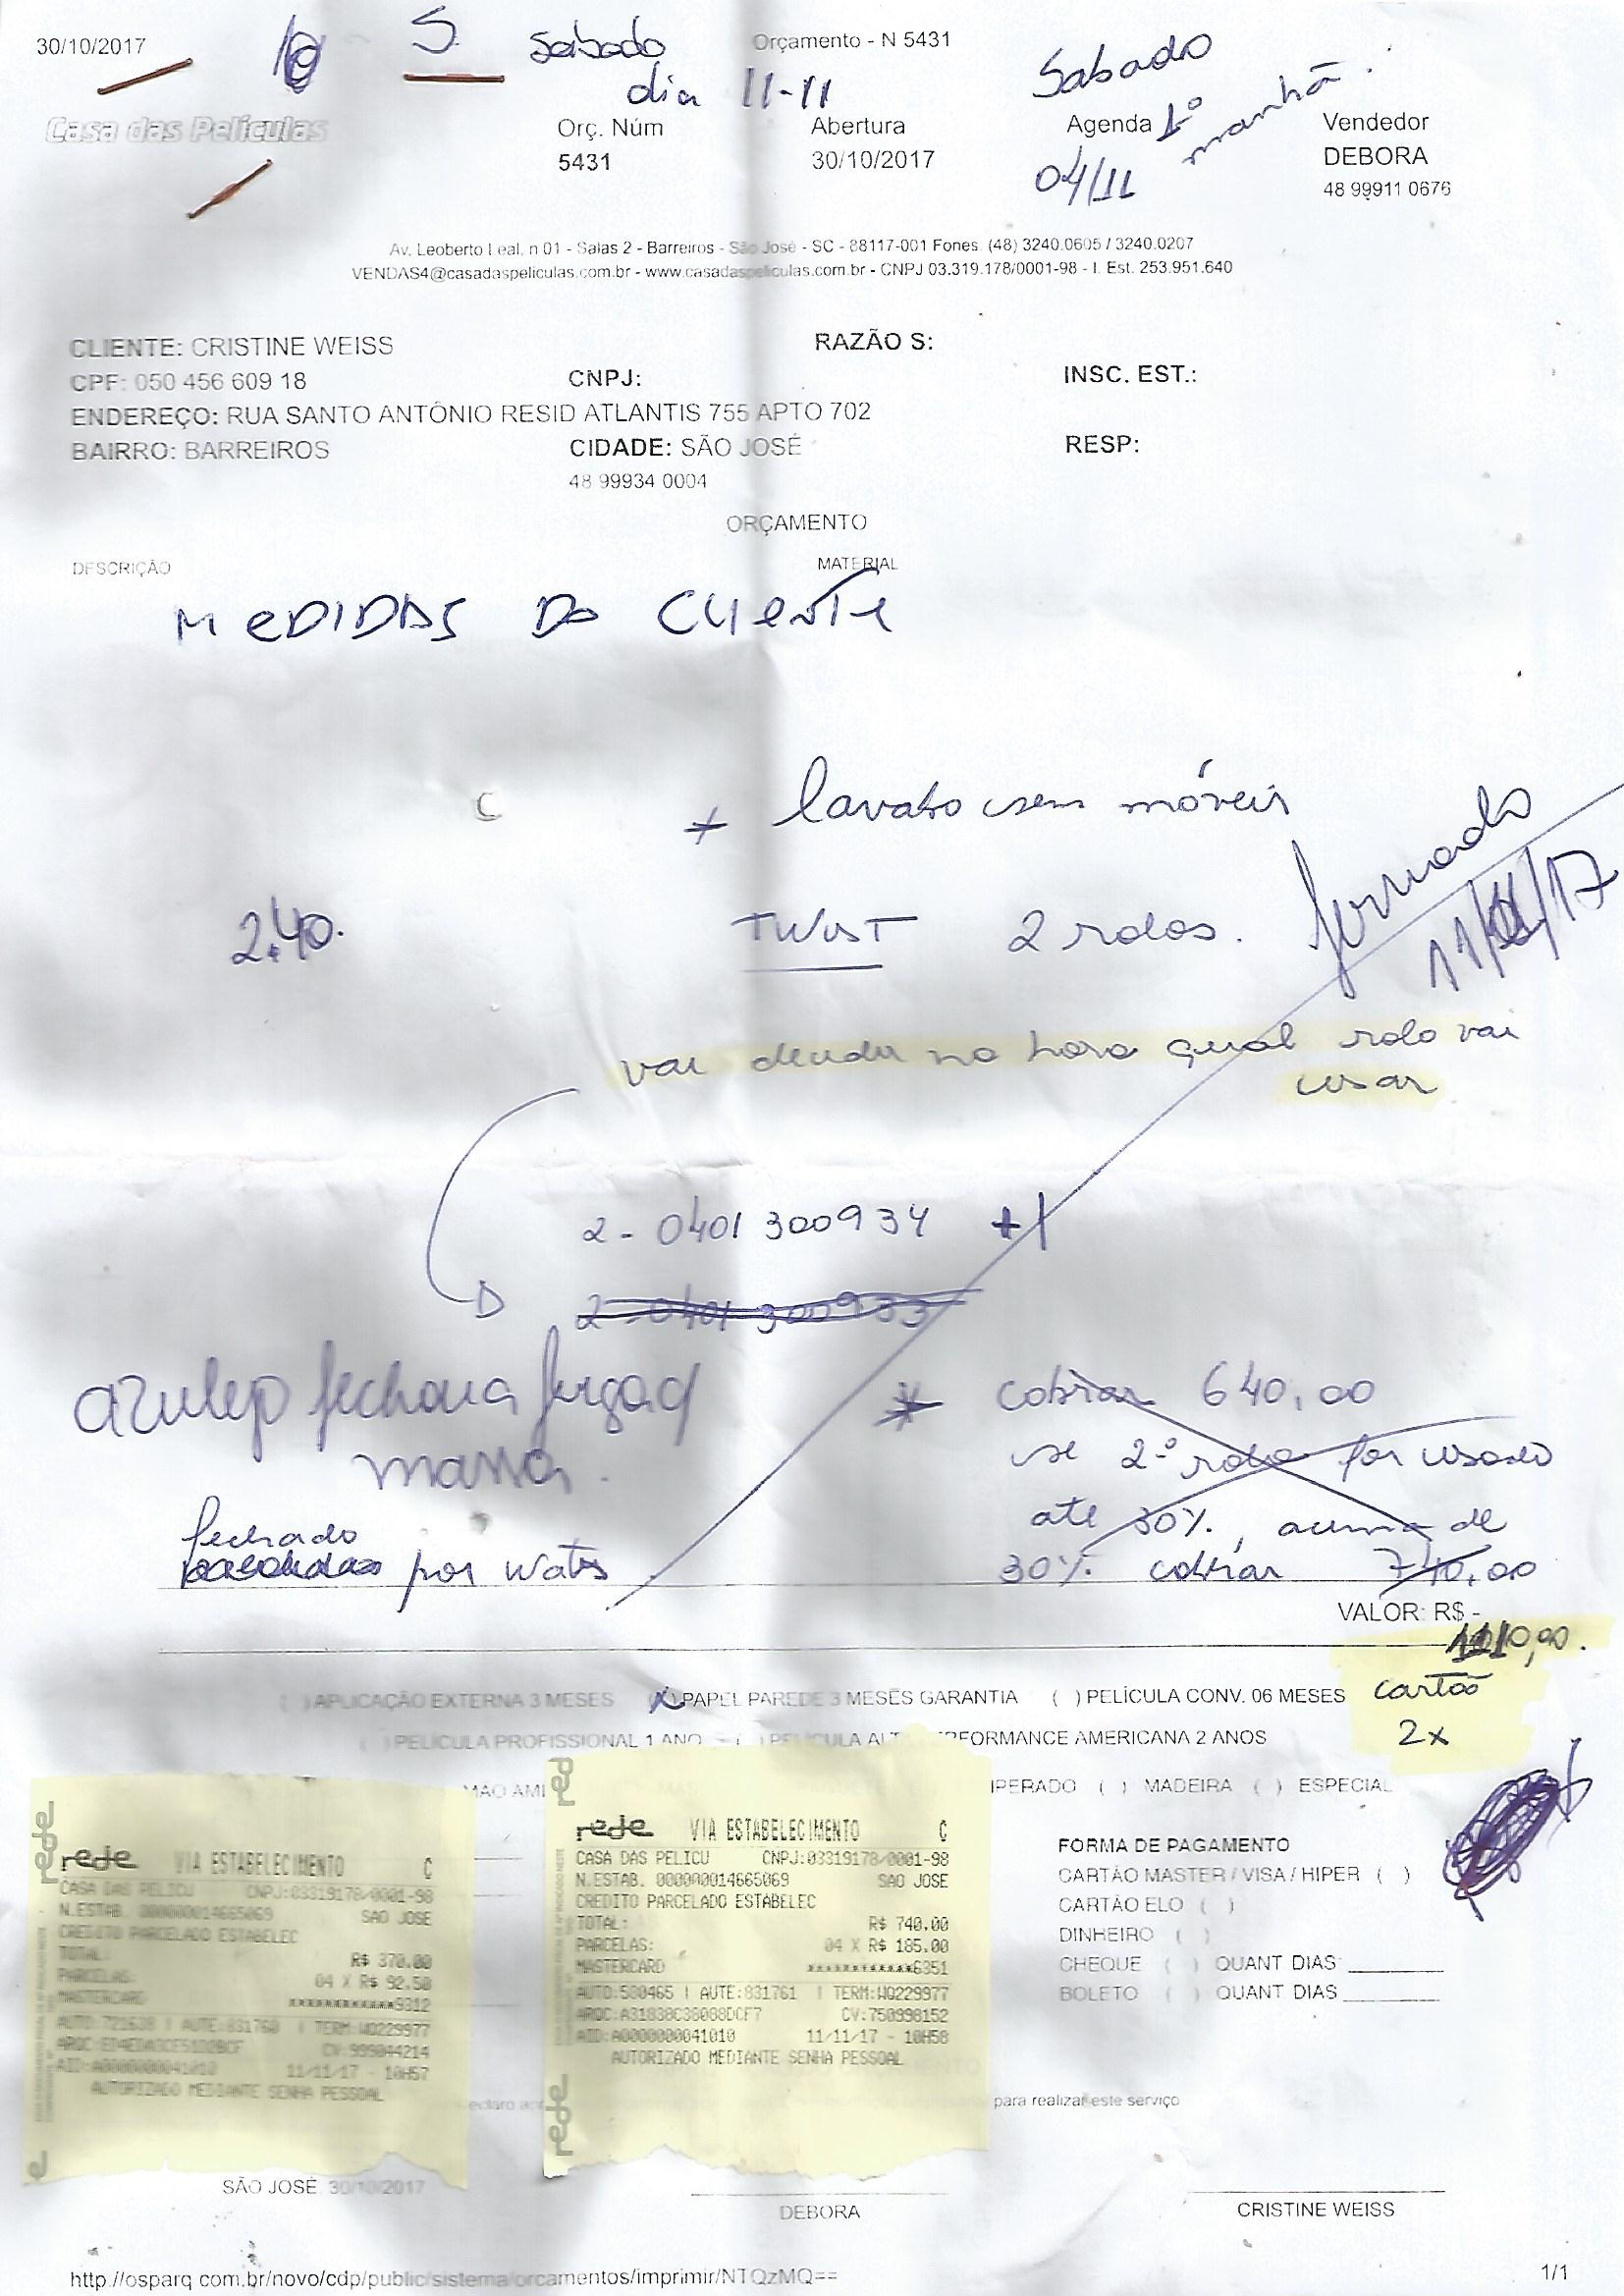 30/10/2017
5 sabado Orçamento - N 5431
dia 11-11 Sabado
1º manhã.
Casa das Películas
Orç. Núm Abertura Agenda Vendedor
5431 30/10/2017 04/11 DEBORA
48 99911 0676
Av. Leoberto Leal, n 01 - Salas 2 - Barreiros - São José - SC - 88117-001 Fones. (48) 3240.0605 / 3240.0207
VENDAS4@casadaspeliculas.com.br - www.casadaspeliculas.com.br - CNPJ 03.319.178/0001-98 - I. Est. 253.951.640
CLIENTE: CRISTINE WEISS RAZÃO S:
CPF: 050 456 609 18 CNPJ: INSC. EST.:
ENDEREÇO: RUA SANTO ANTÔNIO RESID ATLANTIS 755 APTO 702
BAIRRO: BARREIROS CIDADE: SÃO JOSÉ RESP:
48 99934 0004
ORÇAMENTO
DESCRIÇÃO MATERIAL
MEDIDAS DO CLIENTE
* lavabo sem móveis
2.40. TWIST 2 rolos.
11/11/17
vai decidir na hora qual rolo vai
usar
2 - 0401 300934 +1
2 - 0401 300933
* cobrar 640,00
se 2º rolo for usado
até 30%, acima de
30% cobrar 740,00
fechado
por wats
VALOR: R$ -
1110,00.
( ) APLICAÇÃO EXTERNA 3 MESES (X) PAPEL PAREDE 3 MESES GARANTIA ( ) PELÍCULA CONV. 06 MESES cartão
2x
( ) PELÍCULA PROFISSIONAL 1 ANO ( ) PELÍCULA ALT PERFORMANCE AMERICANA 2 ANOS
MAO AMI IPERADO ( ) MADEIRA ( ) ESPECIAL
rede VIA ESTABELECIMENTO C
CASA DAS PELICU CNPJ:03319178/0001-98
N.ESTAB. 000000014665069 SAO JOSE
CREDITO PARCELADO ESTABELEC
TOTAL: R$ 370.00
PARCELAS: 04 X R$ 92.50
MASTERCARD ************9312
AUTO:721638 | AUTE:831760 | TERM:WQ229977
CV:999044214
AID:A0000000041010 11/11/17 - 10H57
AUTORIZADO MEDIANTE SENHA PESSOAL
rede VIA ESTABELECIMENTO C
CASA DAS PELICU CNPJ:03319178/0001-98
N.ESTAB. 000000014665069 SAO JOSE
CREDITO PARCELADO ESTABELEC
TOTAL: R$ 740.00
PARCELAS: 04 X R$ 185.00
MASTERCARD ************6351
AUTO:580465 | AUTE:831761 | TERM:WQ229977
ARQC:A31838C38088DCF7 CV:750998152
AID:A0000000041010 11/11/17 - 10H58
AUTORIZADO MEDIANTE SENHA PESSOAL
FORMA DE PAGAMENTO
CARTÃO MASTER / VISA / HIPER ( )
CARTÃO ELO ( )
DINHEIRO ( )
CHEQUE ( ) QUANT DIAS:
BOLETO ( ) QUANT DIAS
para realizar este serviço
SÃO JOSÉ, 30/10/2017
DEBORA CRISTINE WEISS
http://osparq.com.br/novo/cdp/public/sistema/orcamentos/imprimir/NTQzMQ== 1/1